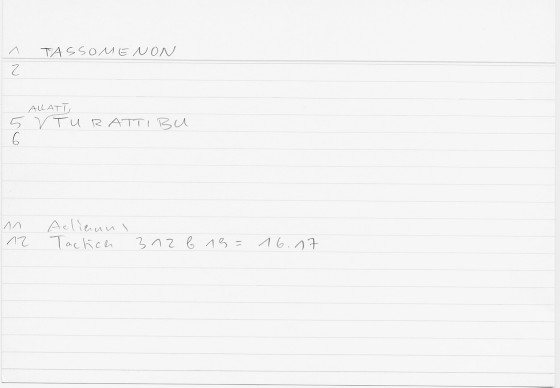 1 TASSOMENON
2
ALLATI,
5 √TURATTIBU
6
11 Aelianus
12 Tactica 312 b 19 = 16.17